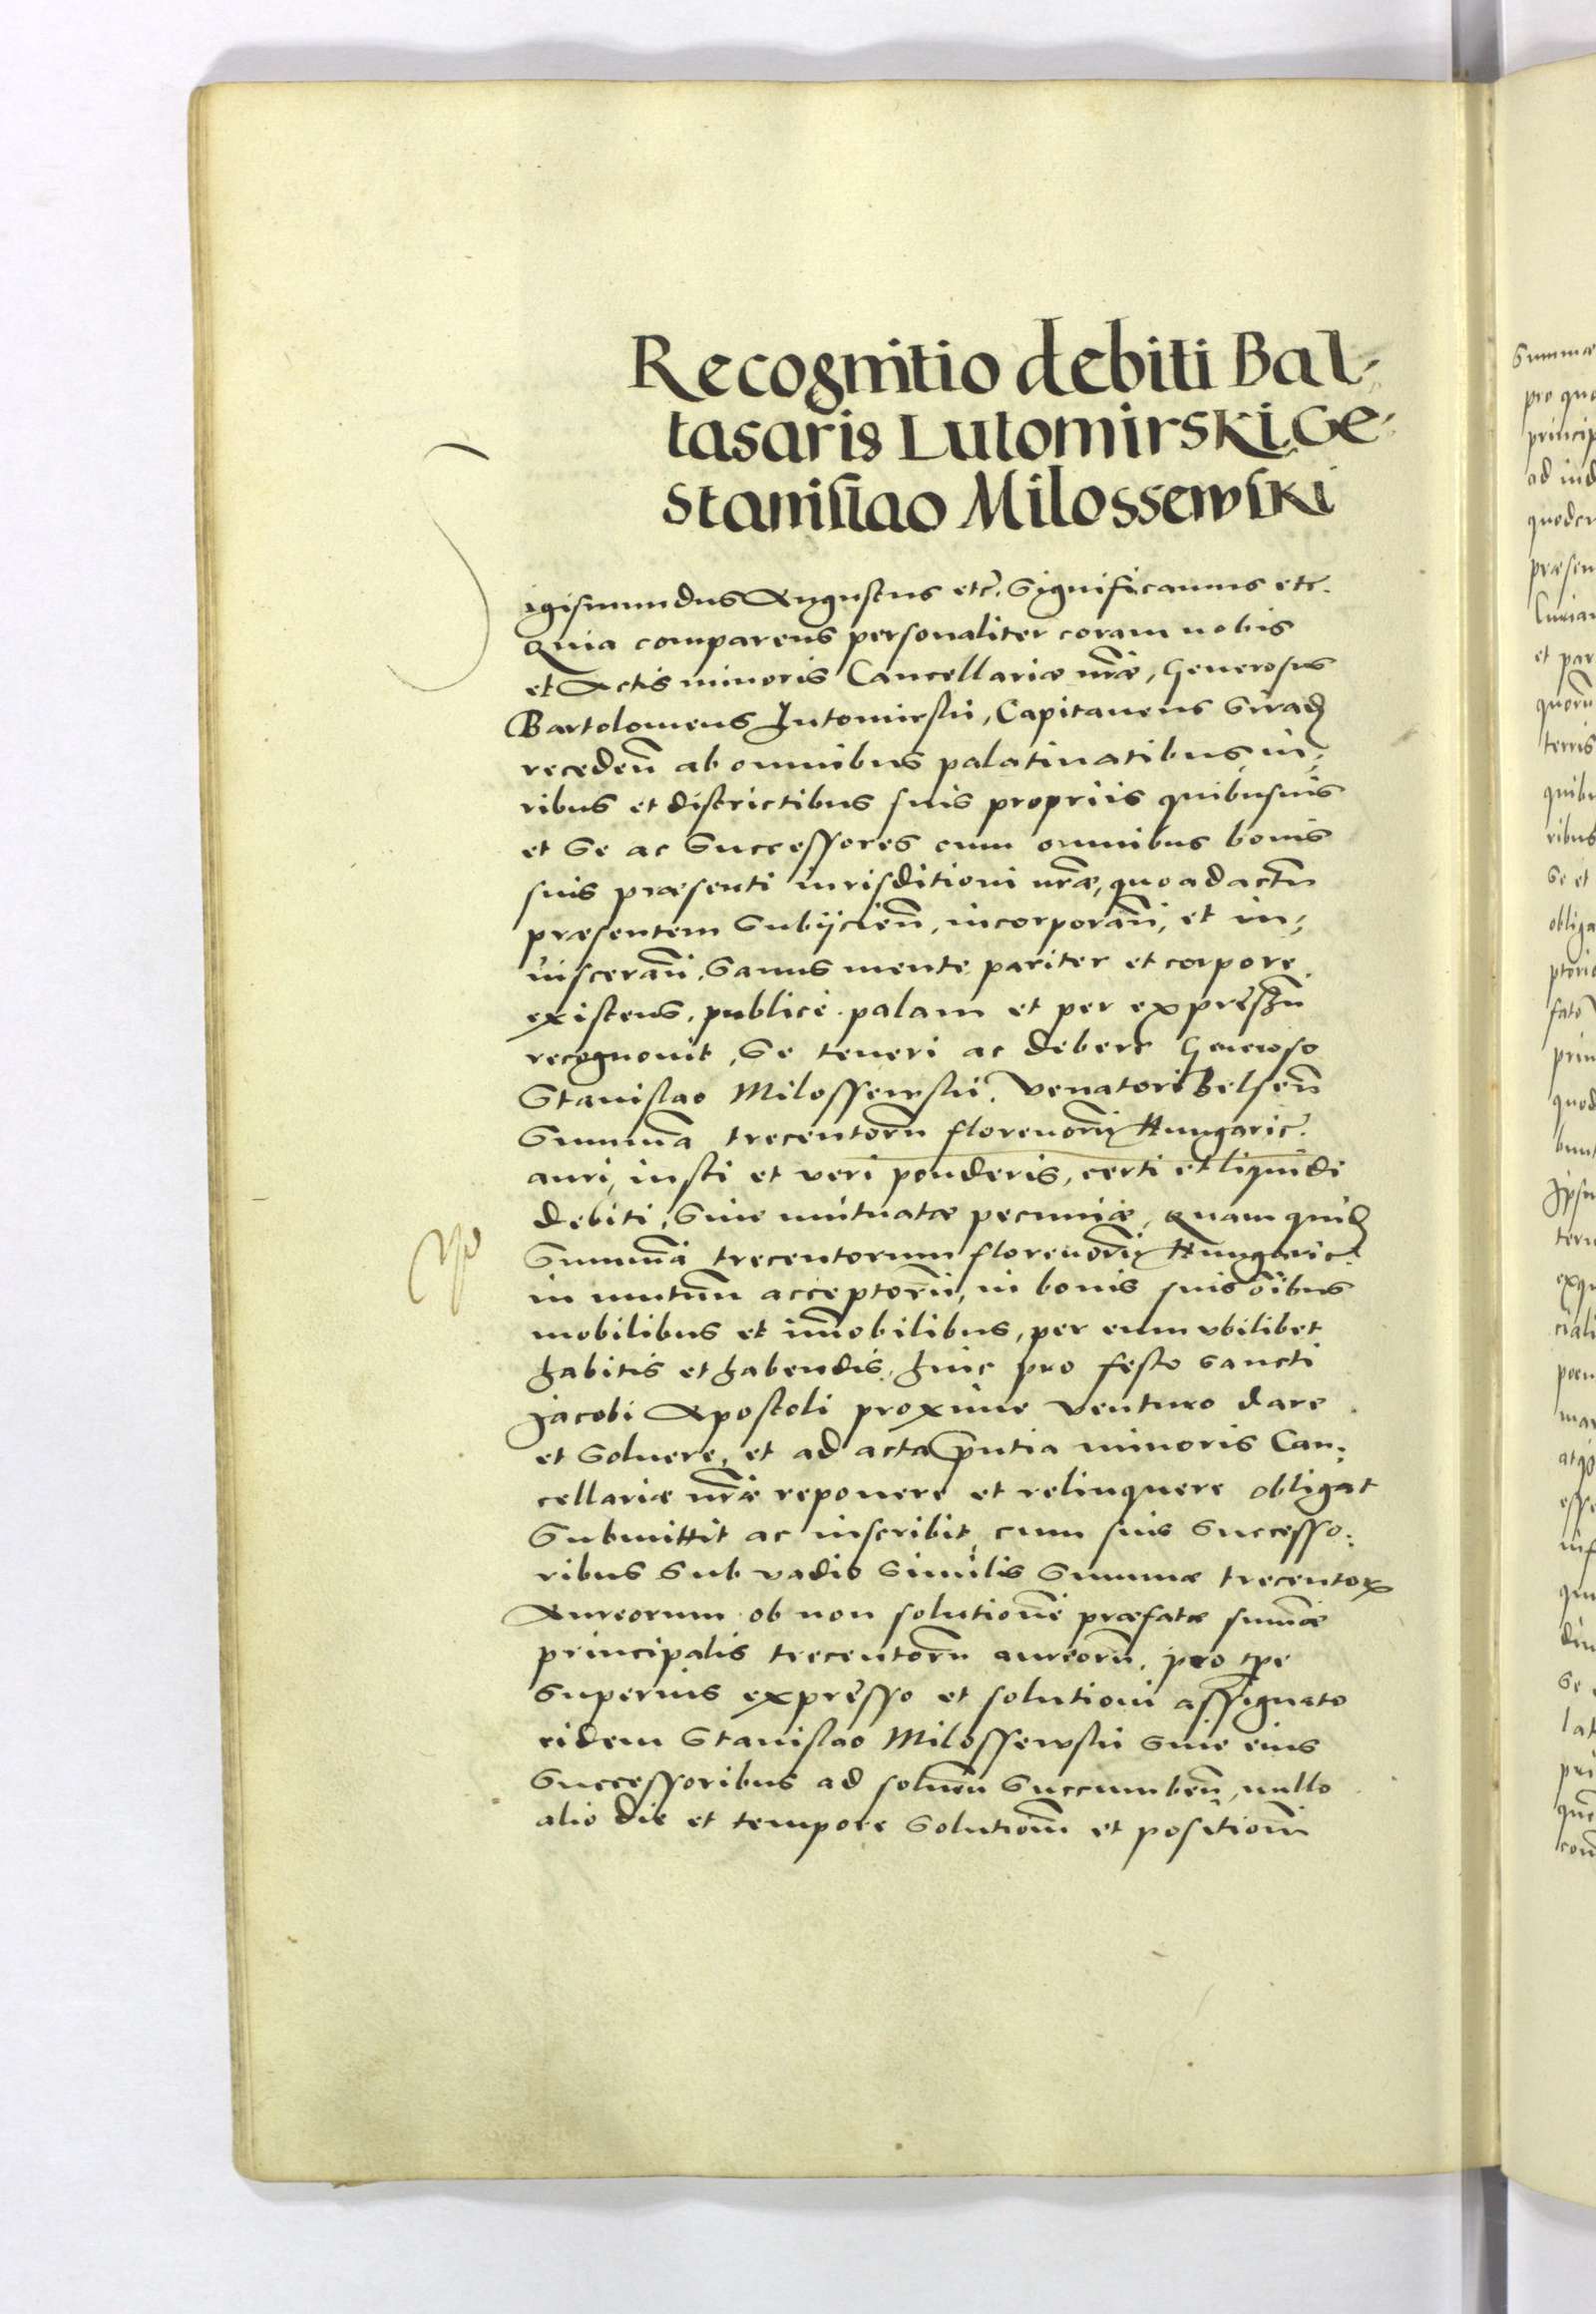 Recognitio debiti Bal-
tasaris Lutomirski Ge-
Stanislao Milossewski
Sigismundus Augustus etc̃. Significamus etc.
Quia comparens personaliter coram nobis
et Actis minoris Cancellariæ nr̃æ, Generosus
Bartolomeus Lutomirski, Capitaneus Sirad
receden̄ ab omnibus palatinatibus, iu-
ribus et districtibus suis propriis quibusuis
et Se ac Successores cum omnibus bonis
suis præsenti iurisditioni nr̃æ, quo ad actũ
præsentem Subijcien̄, incorporan̄, et in-
uisceran̄, Sanus mente pariter et corpore
existens, publicè palam et per expressũ
recognouit, Se teneri ac debere Generoso
Stanislao Milossewski, Venatori Belsen̄
Summa trecentorũ florenorũ Hungaric̃.
auri, iusti et veri ponderis, certi et liquidi
debiti, Siue mutuatæ pecuniæ, Quam quid
Summã trecentorum florenorũ Hungaric̃.
in mutuũ acceptorũ, in bonis suis oĩbus
mobilibus et im̃obilibus, per eum vbilibet
habitis et habendis, hinc pro festo sancti
Jacobi Apostoli proxime venturo dare
et Soluere, et ad acta p̃ntia minoris Can-
cellariæ nr̃æ reponere et relinquere obligat
Submittit ac inscribit, cum suis Successo-
ribus Sub vadio Similis Summæ trecentoꝝ
Aureorum ob non solutionẽ præfatæ sum̃æ
principalis trecentorũ aureorũ, pro tp̃e
Superius expresso et solutioni assignato
eidem Stanislao Milossewski Siue eius
Successoribus ad soluen̄ Succumben̄, nullo
alio die et tempore Solutiom̃ et positiom̃